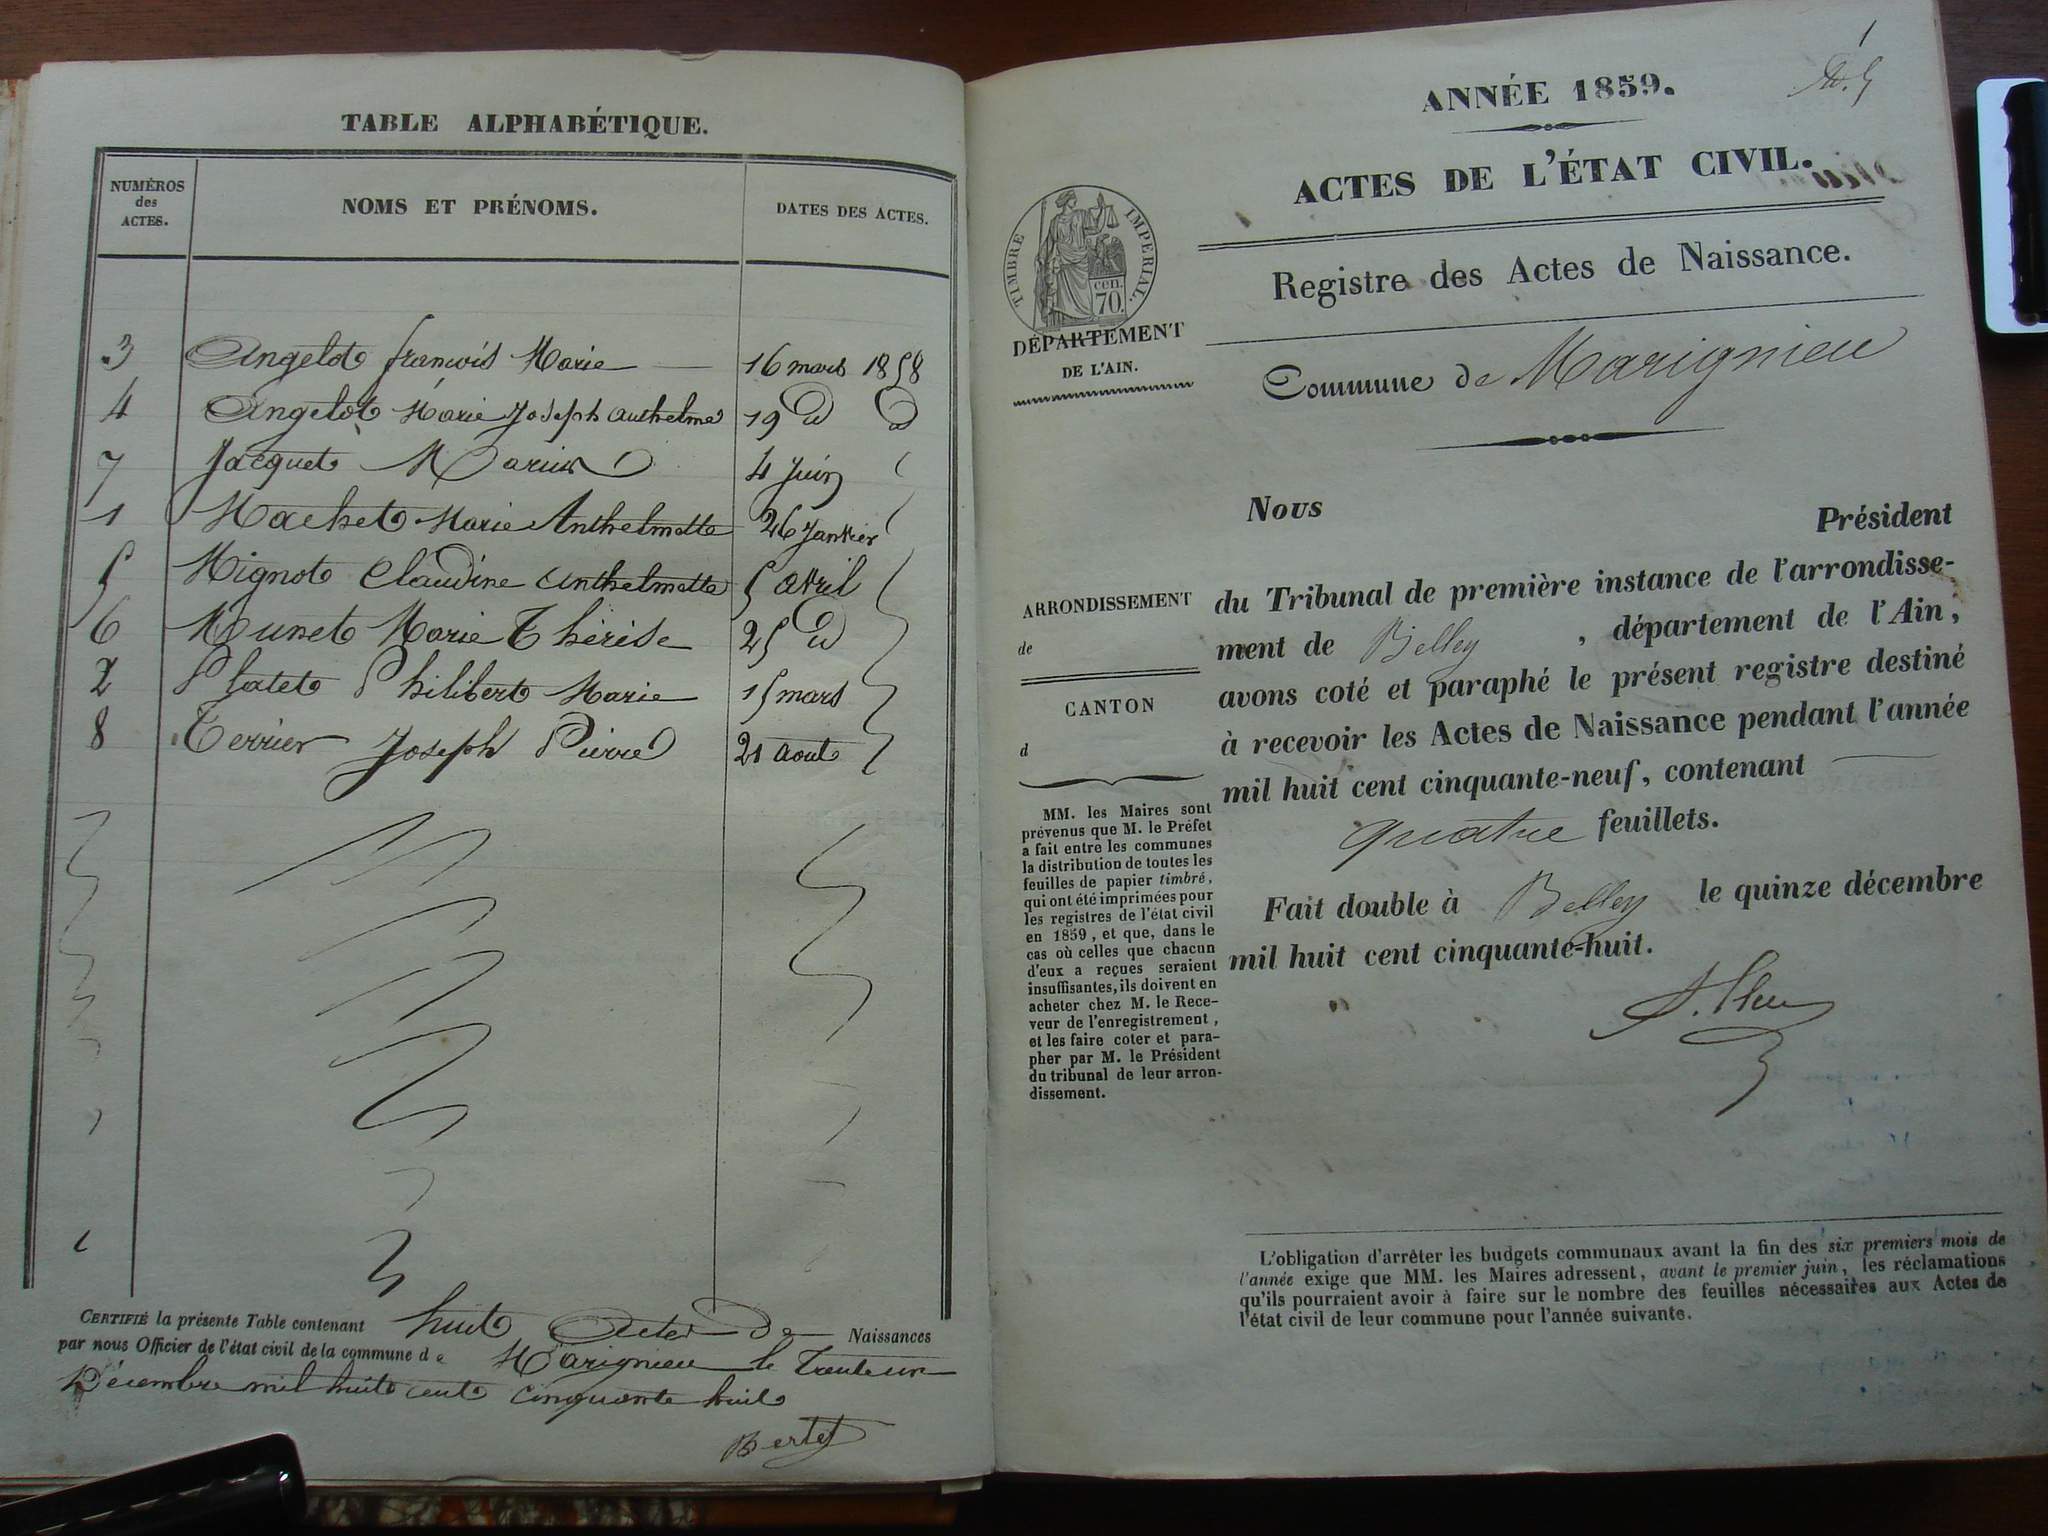 TABLE ALPHABÉTIQUE.
NUMÉROS des ACTES.
NOMS ET PRÉNOMS.
DATES DES ACTES.
3 Angelot françois Marie 16 mars 1858
4 Angelot Marie Joseph Anthelme 19 d d
7 Jacquet Marius 4 Juin
1 Machet Marie Anthelmette 26 Janvier
5 Mignot Claudine Anthelmette 5 Avril
6 Munet Marie Thérèse 25 d
2 Platet Philibert Marie 15 mars
8 Terrier Joseph Pierre 21 Aout
CERTIFIÉ la présente Table contenant huit Actes de Naissances
par nous Officier de l'état civil de la commune de Marignieu le Trente un
Décembre mil huit cent cinquante huit
Bertet
1
ANNÉE 1859.
ACTES DE L'ÉTAT CIVIL.
TIMBRE IMPERIAL.
cen. 70.
DÉPARTEMENT
DE L'AIN.
Registre des Actes de Naissance.
Commune de Marignieu
Nous Président
du Tribunal de première instance de l'arrondisse-
ment de Belley , département de l'Ain,
avons coté et paraphé le présent registre destiné
à recevoir les Actes de Naissance pendant l'année
mil huit cent cinquante-neuf, contenant
quatre feuillets.
Fait double à Belley le quinze décembre
mil huit cent cinquante-huit.
ARRONDISSEMENT
de
CANTON
d
MM. les Maires sont
prévenus que M. le Préfet
a fait entre les communes
la distribution de toutes les
feuilles de papier timbré,
qui ont été imprimées pour
les registres de l'état civil
en 1859, et que, dans le
cas où celles que chacun
d'eux a reçues seraient
insuffisantes, ils doivent en
acheter chez M. le Rece-
veur de l'enregistrement,
et les faire coter et para-
pher par M. le Président
du tribunal de leur arron-
dissement.
L'obligation d'arrêter les budgets communaux avant la fin des six premiers mois de
l'année exige que MM. les Maires adressent, avant le premier juin, les réclamations
qu'ils pourraient avoir à faire sur le nombre des feuilles nécessaires aux Actes de
l'état civil de leur commune pour l'année suivante.